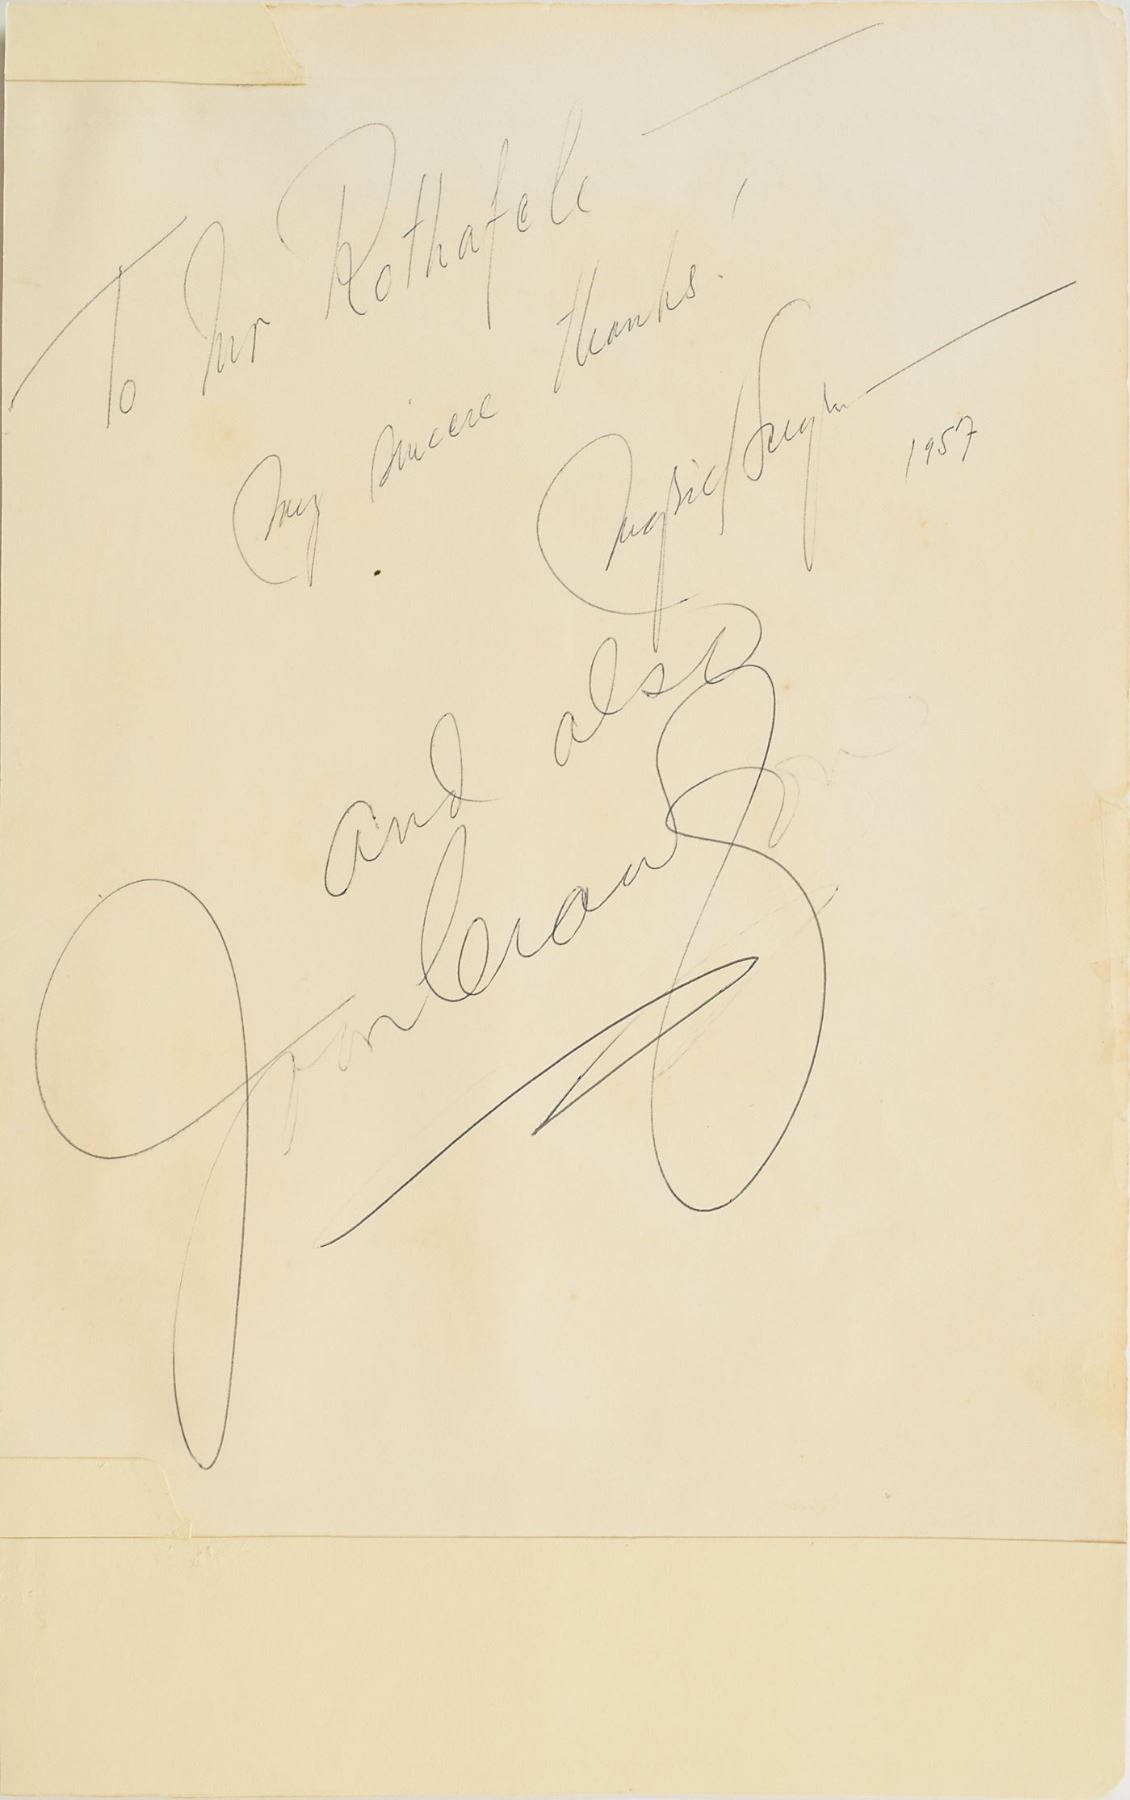 To Mr Rothafele
My sincere thanks!
Ingrid Bergman
1957
and also
Joan Crawford